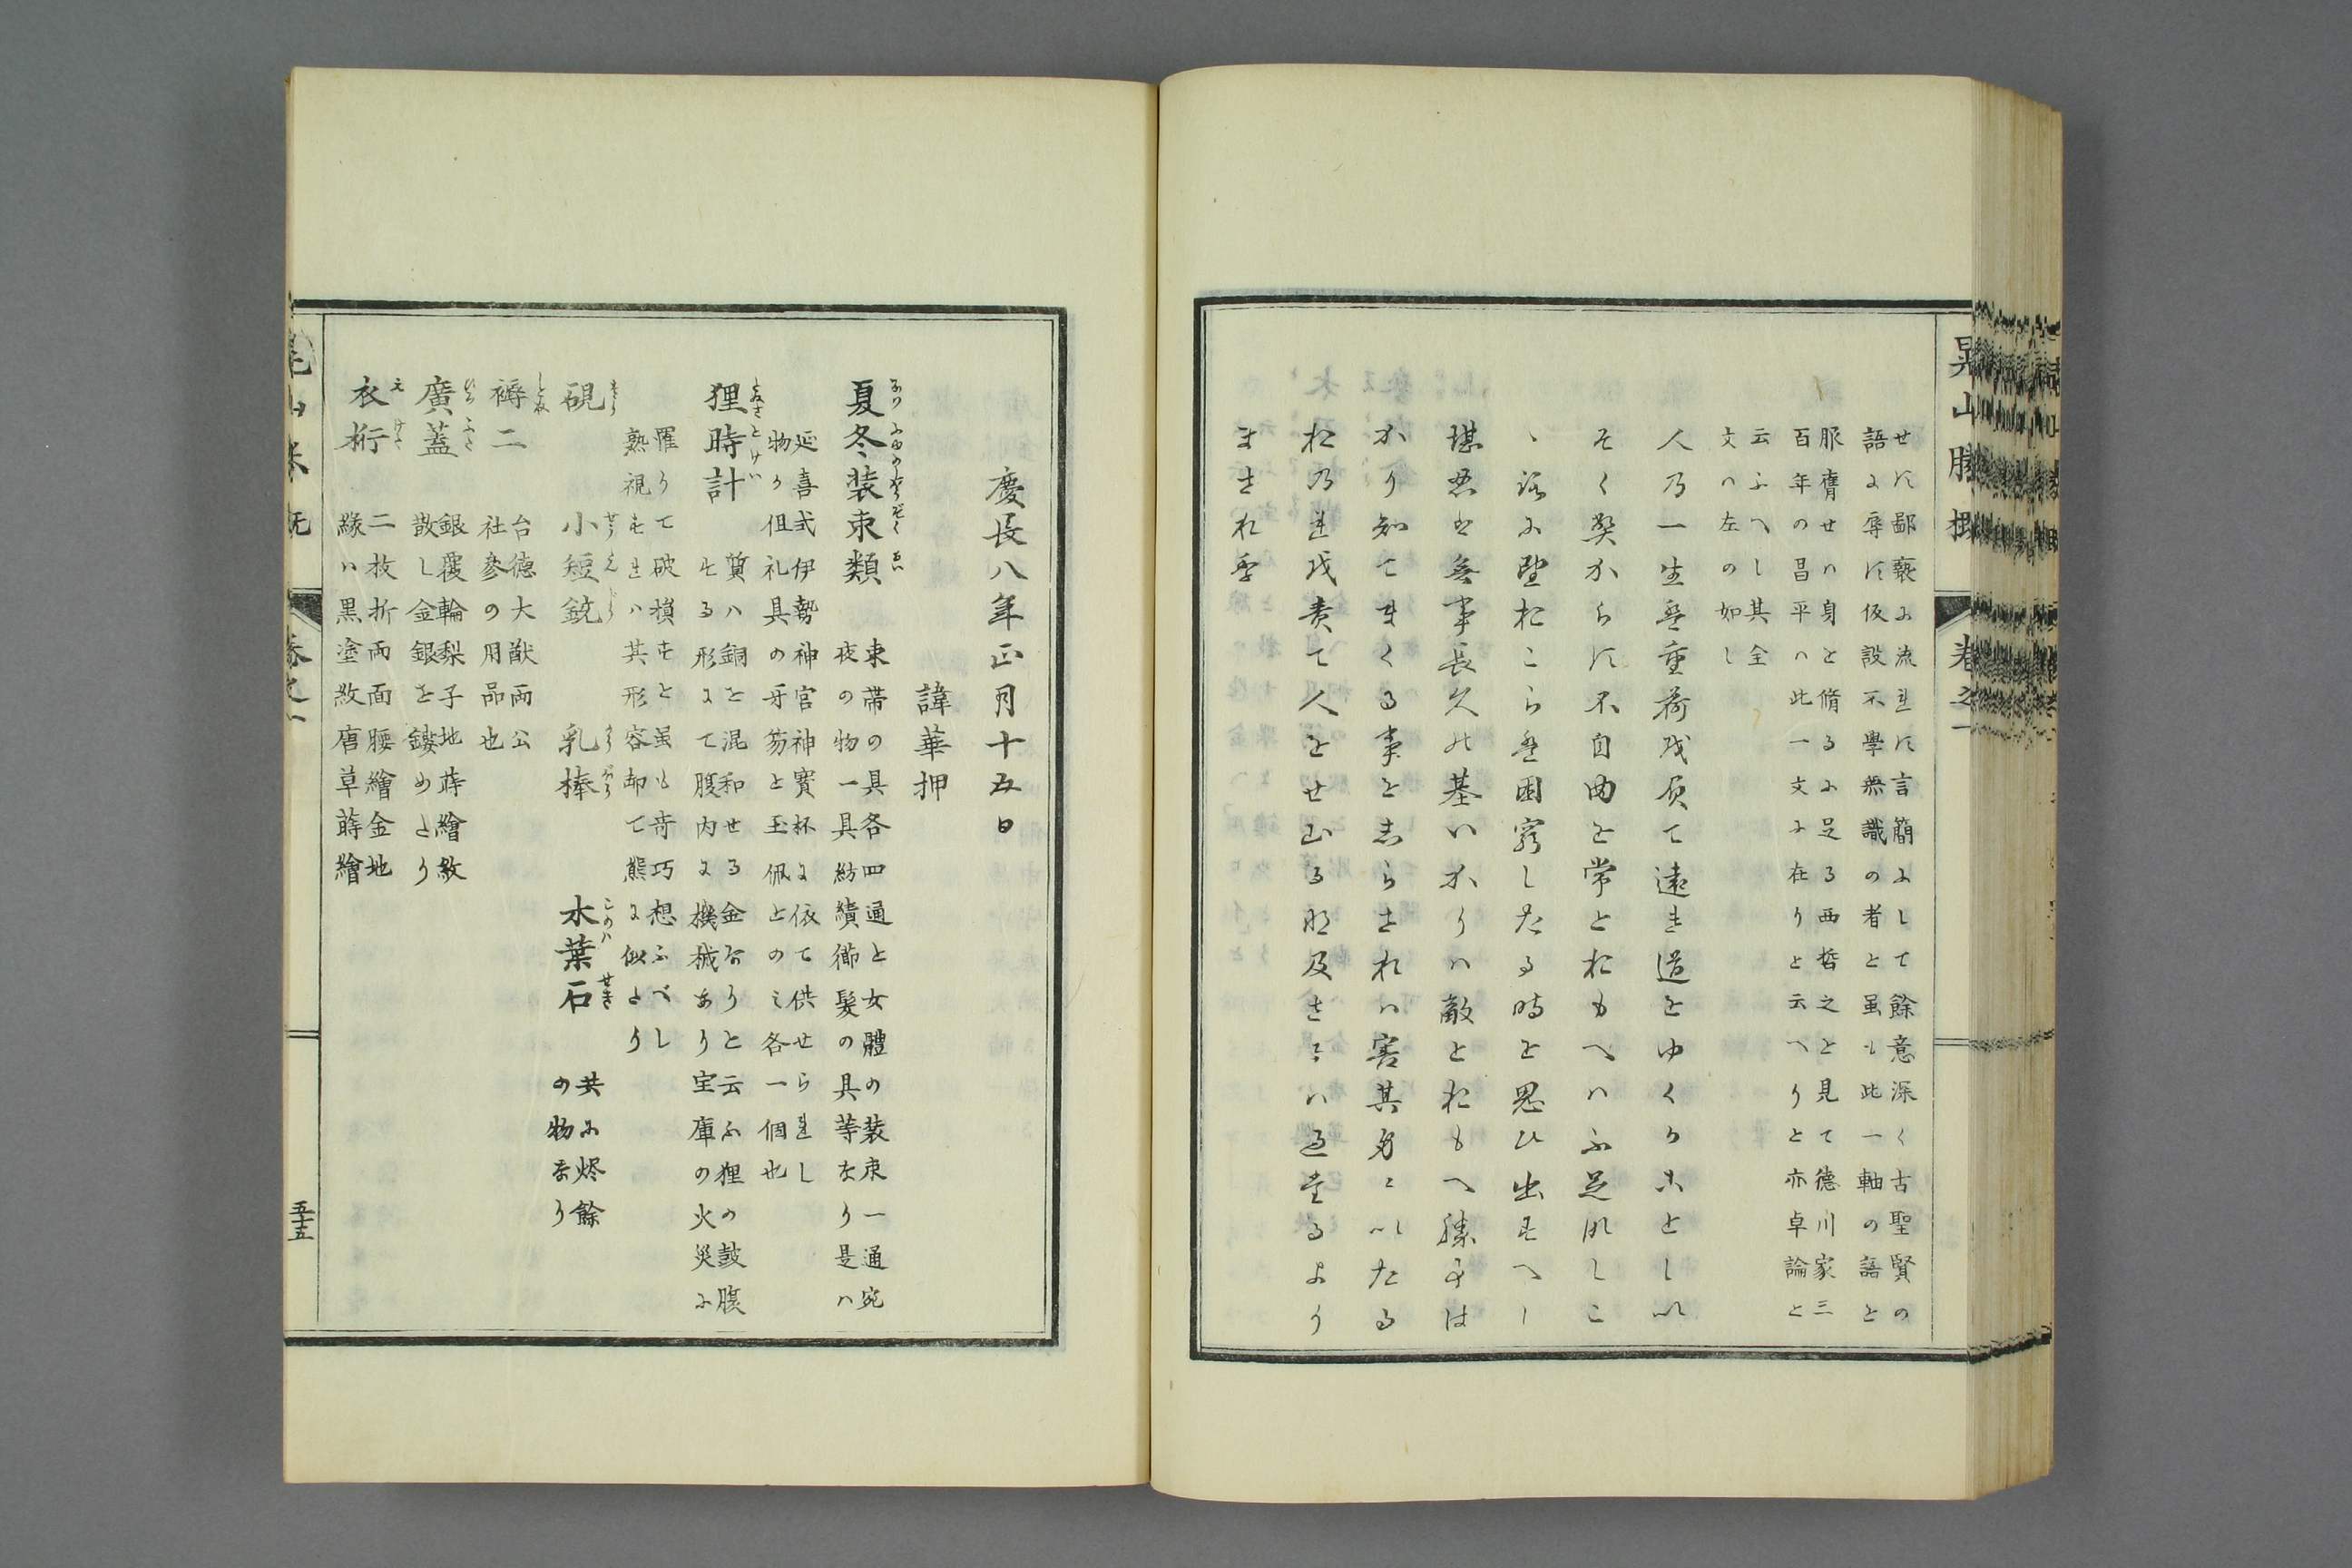 晃山勝概
卷之一
せす鄙褻に流れす言簡にして餘意深く古聖賢の
語に辱す仮設不學無識の者と虽も此一軸の語と
服膺せハ身と脩るに足る西哲之と見て德川家三
百年の昌平ハ此一文に在りと云へりと亦卓論と
云ふへし其全
文ハ左の如し
人乃一生ハ重荷を負て遠き道をゆくかことしい
そくへからす不自由を常とおもへハ不足なしこ
ゝろに望おこらハ困窮したる時を思ひ出すへし
堪忍は無事長久の基いかりハ敵とおもへ勝事は
かり知てまくる事をしらされハ害其身にいたる
おのれを責て人をせむるな及さるハ過たるより
まされり
慶長八年正月十五日
諱華押
夏冬装束類
束帯の具各四通と女體の装束一通宛
夜の物一具紡績櫛髮の具等なり是ハ
延喜式伊勢神官神寶杯に依て供せられし
物か俎礼具の牙笏と玉佩とのミ各一個也
狸時計
質ハ銅と混和せる金なりと云ふ狸の鼓腹
せる形にて腹内に機械あり宝庫の火災に
罹りて破損すと虽も竒巧想ふべし
熟視すれハ其形容却て熊に似たり
硯
小短銃
乳棒
木葉石
共に烬餘
の物なり
褥二
台德大猷両公
社參の用品也
廣蓋
銀覆輪梨子地蒔繪紋
散し金銀を鏤めたり
衣桁
二枚折両面腰繪金地
緣ハ黒塗紋唐草蒔繪
五十五